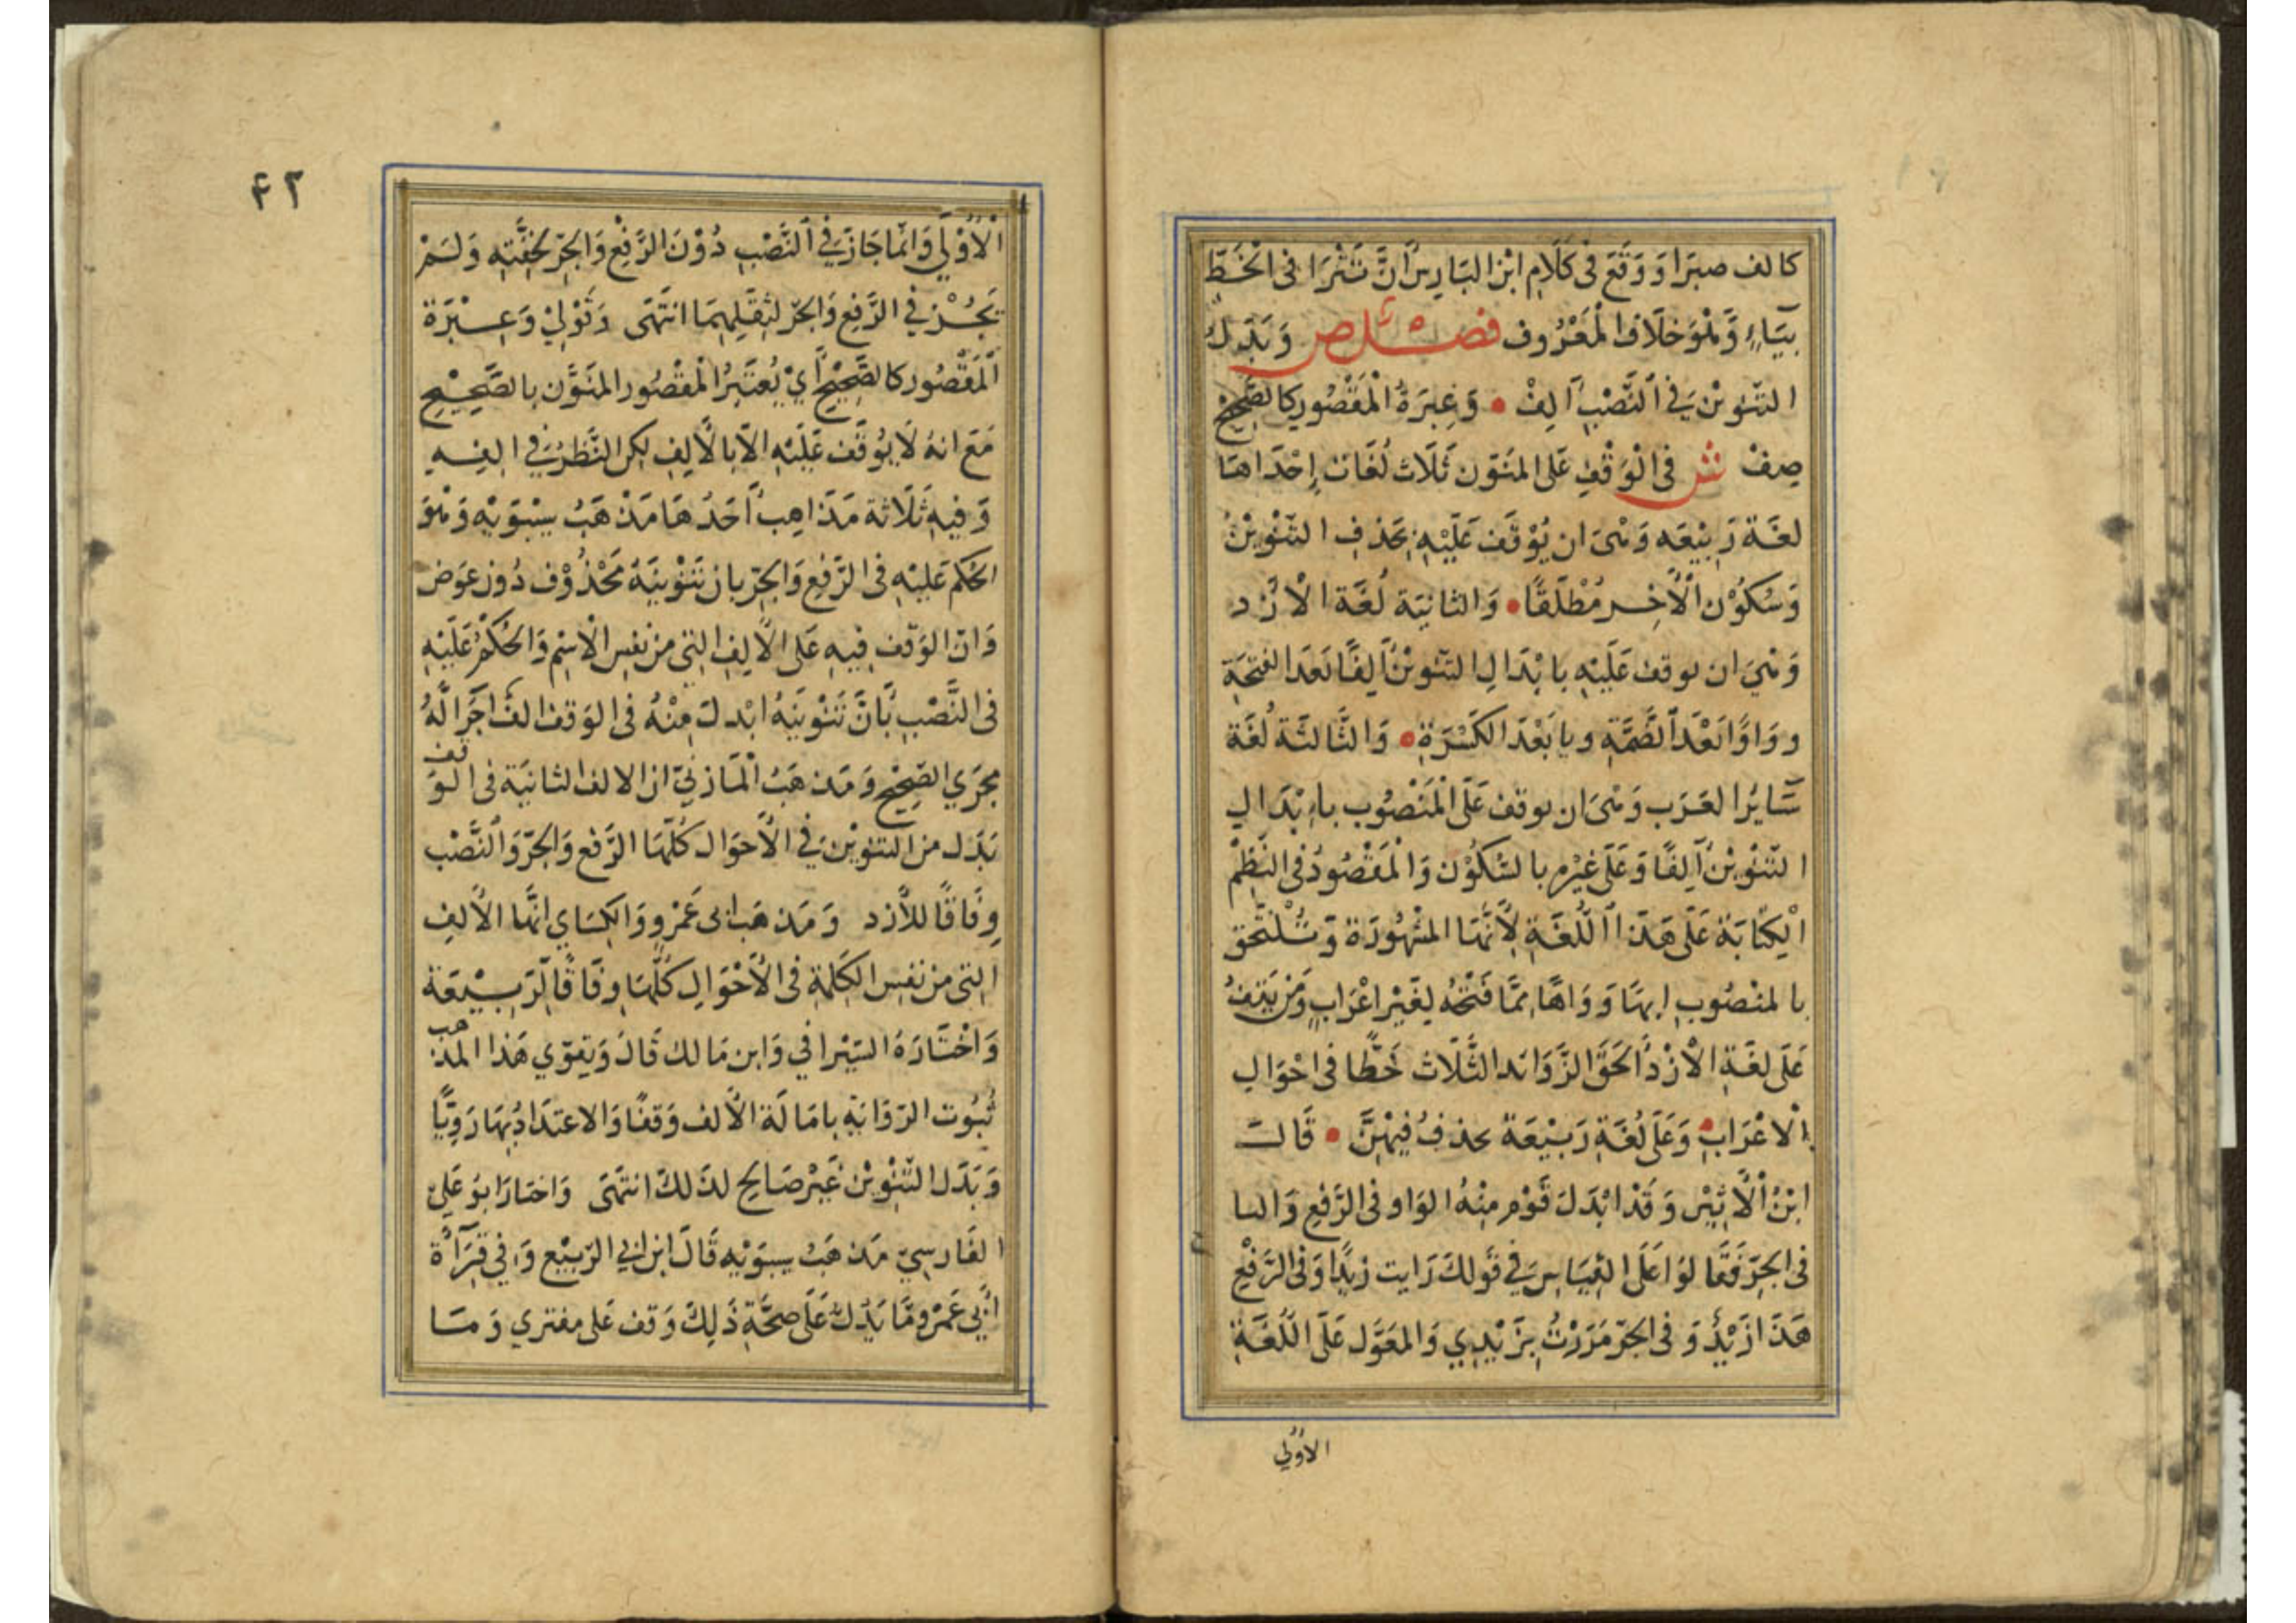 كالف صبرا ووقع في كلام ابن البارس أن تترا في الخط
بياء وهو خلاف المعروف فصل ص وبدل
التنوين في النصب ألف • وعبرة المقصور كالصحيح
صف ش في الوقف على المنون ثلاث لغات إحداها
لغة ربيعه وهي ان يوقف عليه بحذف التنوين
وسكون الأخر مطلقا • والثانية لغة الأزد
وهي ان يوقف عليه بابدال التنوين ألفا بعد الفتحة
وواوا بعد الضمة ويا بعد الكسرة • والثالثة لغة
سائر العرب وهي ان يوقف على المنصوب بابدال
التنوين ألفا وعلى غيره بالسكون والمقصود في النظم
الكتابة على هذا اللغة لأنها المشهورة وتلتحق
بالمنصوب ايها وواها مما فتحه لغير اعراب ومن يقف
على لغة الأزد ألحق الزوائد الثلاث خطا في احوال
الاعراب • وعلى لغة ربيعة يحذف فيهن • قال
ابن الأثير وقد ابدل قوم منه الواو في الرفع واليا
في الجر فقالوا على القياس في قولك رايت زيدا وفي الرفع
هذا زيد و في الجر مررت بزيدي والمعول على اللغة
الاولي
٤٢
الأولي وانما جاز في النصب دون الرفع والجر لخفته ولم
يجز في الرفع والجر لثقلهما انتهى وقولي وعبرة
المقصور كالصحيح أي يعتبر المقصور المنون بالصحيح
مع انه لا يوقف عليه الا بالألف لكن النظر في الفه
وفيه ثلاثة مذاهب أحدها مذهب سيبويه وهو
الحكم عليه في الرفع والجر بان تنوينه محذوف دون عوض
وان الوقف فيه على الألف التي من نفس الاسم والحكم عليه
في النصب بأن تنوينه ابدل منه في الوقف الف اجرا له
مجري الصحيح ومذهب المازني ان الالف الثانية في الوقف
بدل من التنوين في الأحوال كلها الرفع والجر والنصب
وفاقا للأزد ومذهب ابي عمرو والكساي انها الألف
التي من نفس الكلمة في الأحوال كلها وفاقا لربيعة
واختاره السيرافي وابن مالك قال ويقوي هذا المذهب
ثبوت الرواية بامالة الألف وقفا والاعتداد بها رويا
وبدل التنوين غير صالح لذلك انتهى واختار ابو علي
الفارسي مذهب سيبويه قال ابن ابي الربيع وفي قرآءة
أبي عمرو ما يدل على صحة ذلك وقف على مفتري وما